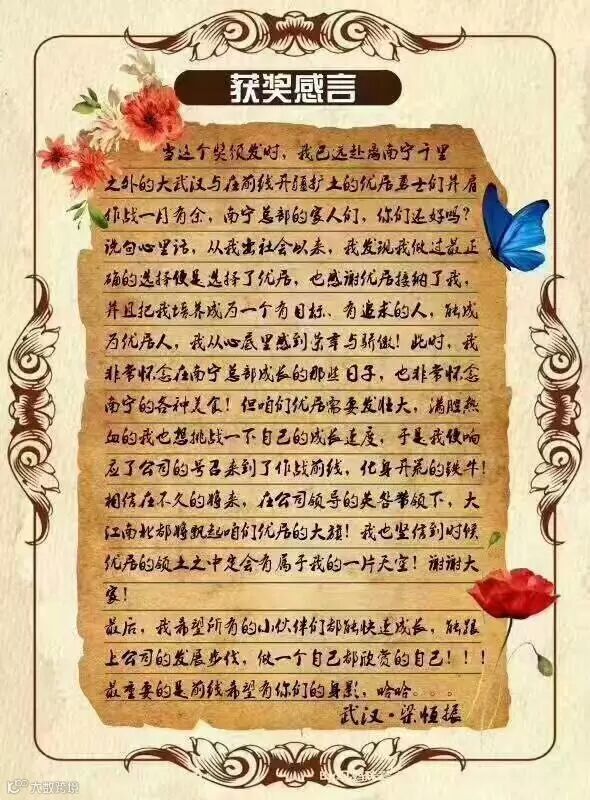 获奖感言
当这个奖颁发时，我已远赴离南宁千里
之外的大武汉与在前线开疆扩土的优居勇士们并肩
作战一月有余，南宁总部的家人们，你们还好吗？
说句心里话，从我出社会以来，我发现我做过最正
确的选择便是选择了优居，也感谢优居接纳了我，
并且把我培养成为一个有目标、有追求的人，能成
为优居人，我从心底里感到荣幸与骄傲！此时，我
非常怀念在南宁总部成长的那些日子，也非常怀念
南宁的各种美食！但咱们优居需要发壮大，满腔热
血的我也想挑战一下自己的成长速度，于是我便响
应了公司的号召来到了作战前线，化身开荒的铁牛！
相信在不久的将来，在公司领导的英明带领下，大
江南北都将飘起咱们优居的大旗！我也坚信到时候
优居的领土之中定会有属于我的一片天空！谢谢大
家！
最后，我希望所有的小伙伴们都能快速成长，能跟
上公司的发展步伐，做一个自己都欣赏的自己！！！
最重要的是前线希望有你们的身影，哈哈。。。
武汉·梁恒振
大数跨境